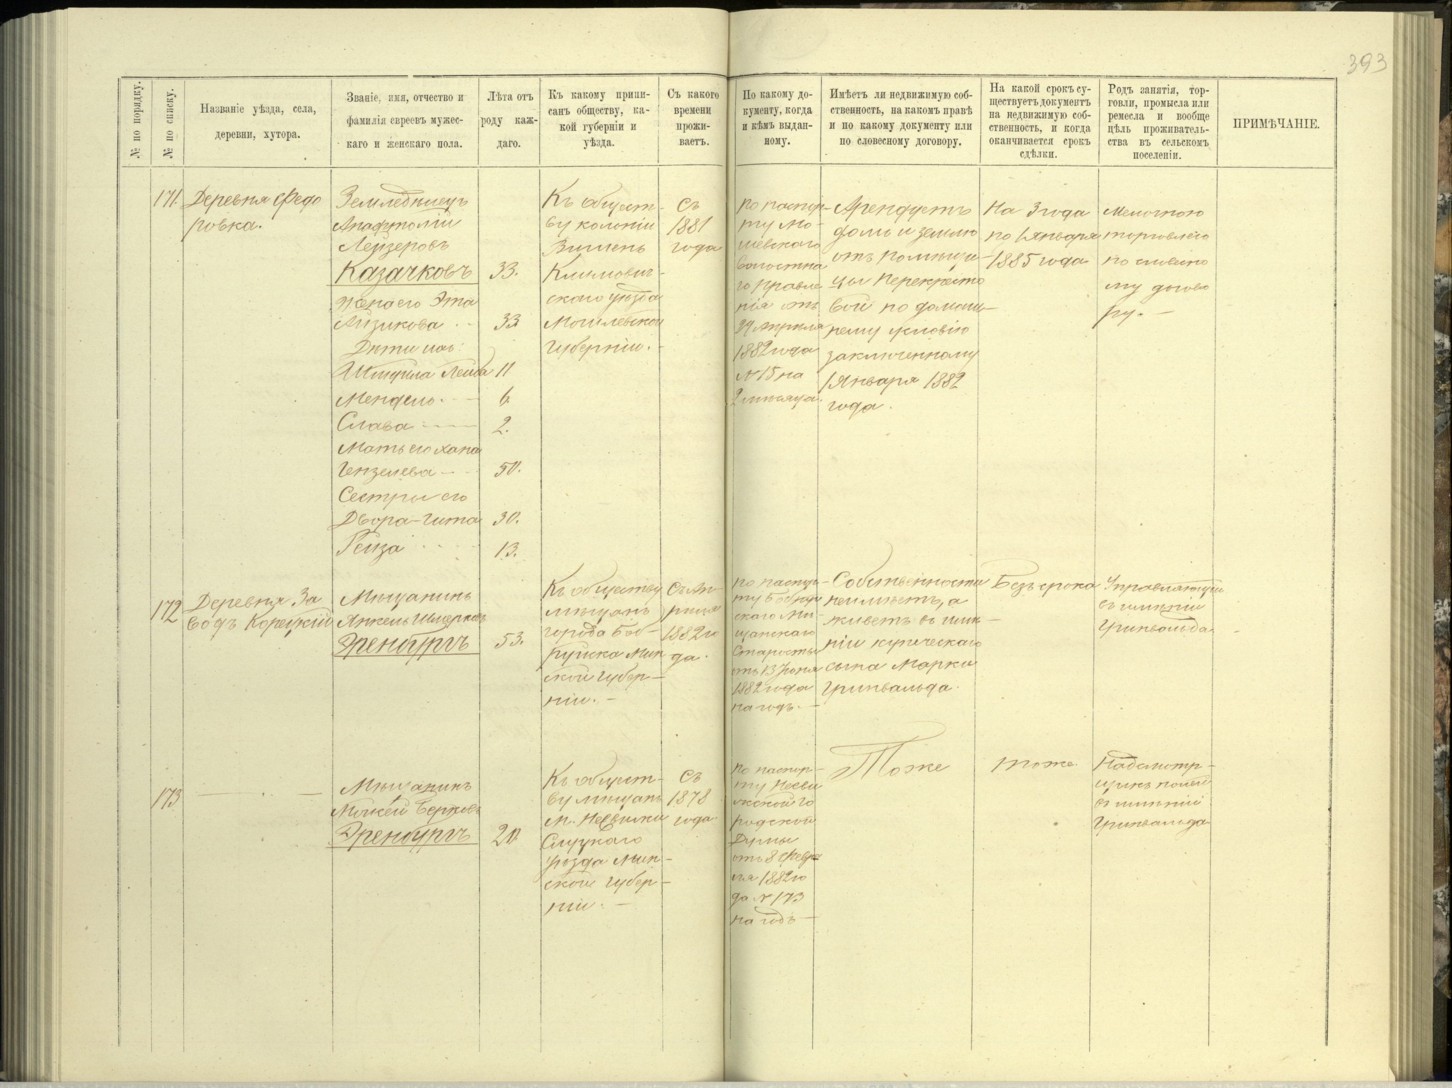 393
№ по порядку.
№ по списку.
Названіе уѣзда, села,
деревни, хутора.
Званіе, имя, отчество и
фамилія евреевъ мужес-
каго и женскаго пола.
Лѣта отъ
роду каж-
даго.
Къ какому припи-
санъ обществу, ка-
кой губерніи и
уѣзда.
Съ какого
времени
прожи-
ваетъ.
По какому до-
кументу, когда
и кѣмъ выдан-
ному.
Имѣетъ ли недвижимую соб-
ственность, на какомъ правѣ
и по какому документу или
по словесному договору.
На какой срокъ су-
ществуетъ документъ
на недвижимую соб-
ственность, и когда
оканчивается срокъ
сдѣлки.
Родъ занятія, тор-
говли, промысла или
ремесла и вообще
цѣль проживатель-
ства въ сельскомъ
поселеніи.
ПРИМѢЧАНІЕ.
171
Деревня Федо
ровка.
Землевладѣлецъ
Лейзеровъ
Казачковъ 33.
жена его Эта
Айзикова 33
Дѣти ихъ:
Лейба 11
Мендель 6
Слава 2.
Мать его Хана
Гензелева 50.
Сестры его
Двора-Гита 30.
Гейза 13.
Къ общест-
ву колоніи
Климович-
скаго уѣзда
Могилевской
губерніи.
Съ
1881
года
по паспор-
ту
волостна
го правле
нія отъ
апрѣля
1882 года
№ 15 на
2 мѣсяца.
Арендуетъ
домъ и землю
отъ помѣщи-
цы Перекресто
вой по домаш-
нему условію
заключенному
1 Января 1882
года.
На 3 года
по 1 января
1885 года
Мелочною
торговлею
по словесно
му догово
ру.
172
Деревня За
водъ Корецкій
Мѣщанинъ
Эренбургъ 53.
Къ обществу
мѣщанъ
города Боб-
руйска Мин
ской губер-
ніи.
Съ Ап-
рѣля
1882 го
да.
по паспор-
ту Бобруй
скаго Мѣ-
щанскаго
Старосты
отъ 13 Іюня
1882 года
на годъ.
Собственности
неимѣетъ, а
живетъ въ имѣ-
ніи купеческаго
сына Марки
Гринвальда.
Безъ срока
Управляющій
въ имѣніи
Гринвальда
173
Мѣщанинъ
Берковъ
Эренбургъ 20
Къ общест-
ву мѣщанъ
м. Несвижа
Слуцкаго
уѣзда Мин-
ской губер-
ніи.
Съ
1878
года
по паспор-
ту Несви
жской го
родской
Думы
отъ 8 Февра
ля 1882 го
да № 173
на годъ
Тоже
тоже
Надсмотр-
щикъ полей
въ имѣніи
Гринвальда